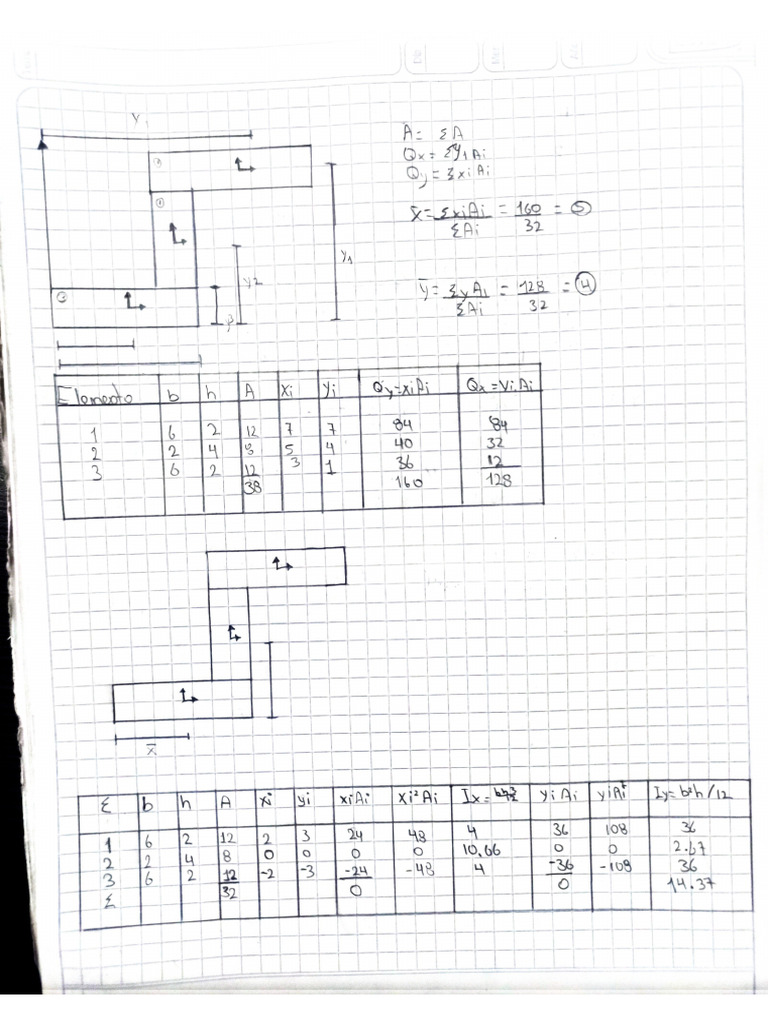 Y1
A = ΣA
Qx = Σy1Ai
Qy = ΣxiAi
x̄ = ΣxiAi / ΣAi = 160 / 32 = 5
ȳ = ΣyAi / ΣAi = 128 / 32 = 4
y1
y2
Elemento b h A Xi Yi Qy=xiAi Qx=YiAi
1 6 2 12 7 7 84 84
2 2 4 8 5 4 40 32
3 6 2 12 3 1 36 12
38 160 128
x̄
Σ b h A xi yi xiAi Xi²Ai Ix= bh³/12 YiAi yiAi² Iy= b³h/12
1 6 2 12 2 3 24 48 4 36 108 36
2 2 4 8 0 0 0 0 10.66 0 0 2.67
3 6 2 12 -2 -3 -24 -48 4 -36 -108 36
Σ 32 0 0 14.37